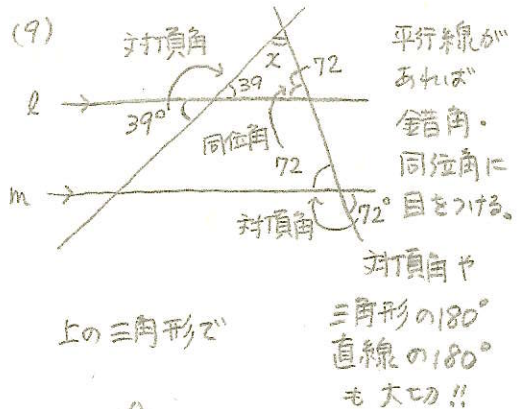 (9)
対頂角
x
72
39
ℓ
39°
同位角
72
m
対頂角
72°
平行線が
あれば
錯角・
同位角に
目をつける。
対頂角や
三角形の180°
直線の180°
も大切!!
上の三角形で